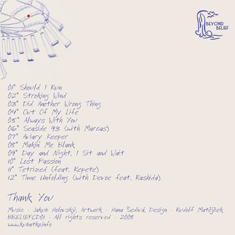 BEYOND
BELIEF
01° Should I Run
02° Stroking Wind
03° Did Another Wrong Thing
04° Out Of My Life
05° Always With You
06° Seaside 93 (with Marcus)
07° Aviary Keeper
08° Makin Me Blank
09° Day and Night, I Sit and Wait
10° Lost Passion
11° Tetrized (feat. Kepete)
12° Time Unfolding (with Devoe feat. Rashida)
Thank You
Music - Jakub Artwork - Hana Design - Rudolf
All rights reserved - 2008